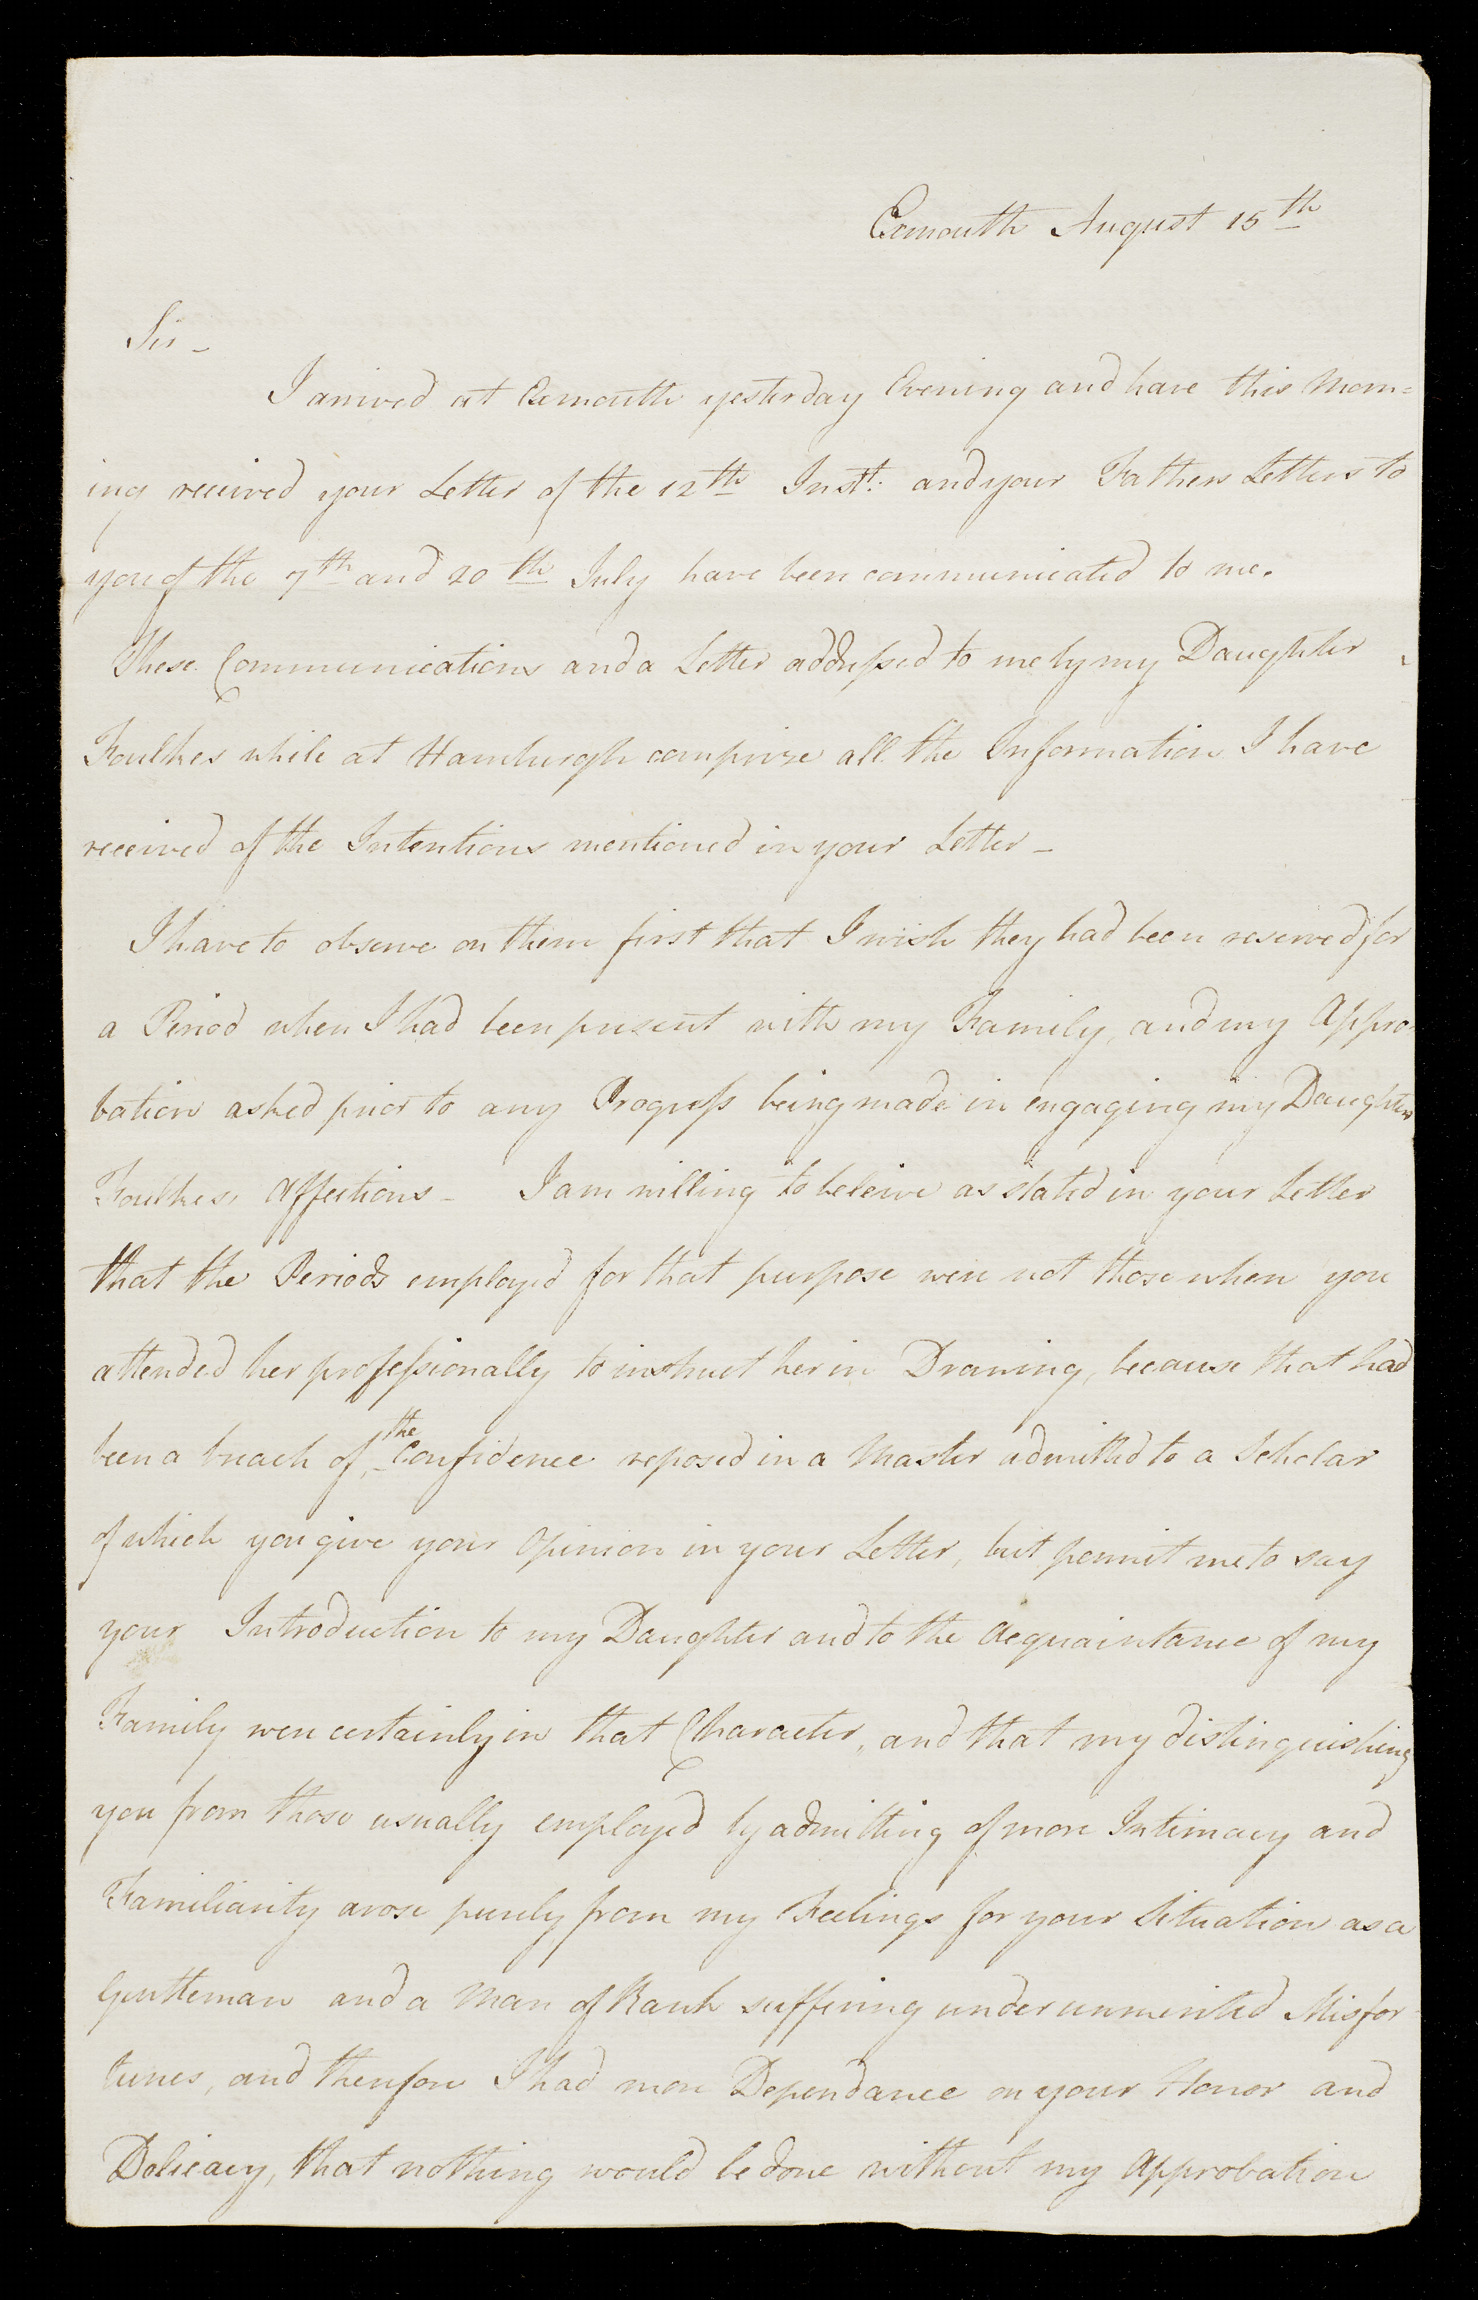 Exmouth August 15th
Sir -
I arrived at Exmouth yesterday Evening and have this Morn=
ing received your Letter of the 12th Instt: and your Fathers Letters to
you of the 7th and 20th July have been communicated to me.
These Communications and a Letter addressed to me by my Daughter
Foulkes while at Hamburgh comprize all the Information I have
received of the Intentions mentioned in your Letter -
I have to observe on them first that I wish they had been reserved for
a Period when I had been present with my Family, and my Appro
bation asked prior to any Progress being made in engaging my Daughter
Foulkes, Affections - I am willing to beleive as stated in your Letter
that the Periods employed for that purpose were not those when you
attended her professionally to instruct her in Drawing, because that had
been a breach of the Confidence reposed in a Master admitted to a Scholar
of which you give your Opinion in your Letter, but permit me to say
your Introduction to my Daughter and to the Acquaintance of my
Family were certainly in that Character, and that my distinguishing
you from those usually employed by admitting of more Intimacy and
Familiarity arose purely from my Feelings for your Situation as a
Gentleman and a Man of Rank suffering under unmerited Misfor
tunes, and therefore I had more Dependance on your Honor and
Delicacy, that nothing would be done without my Approbation